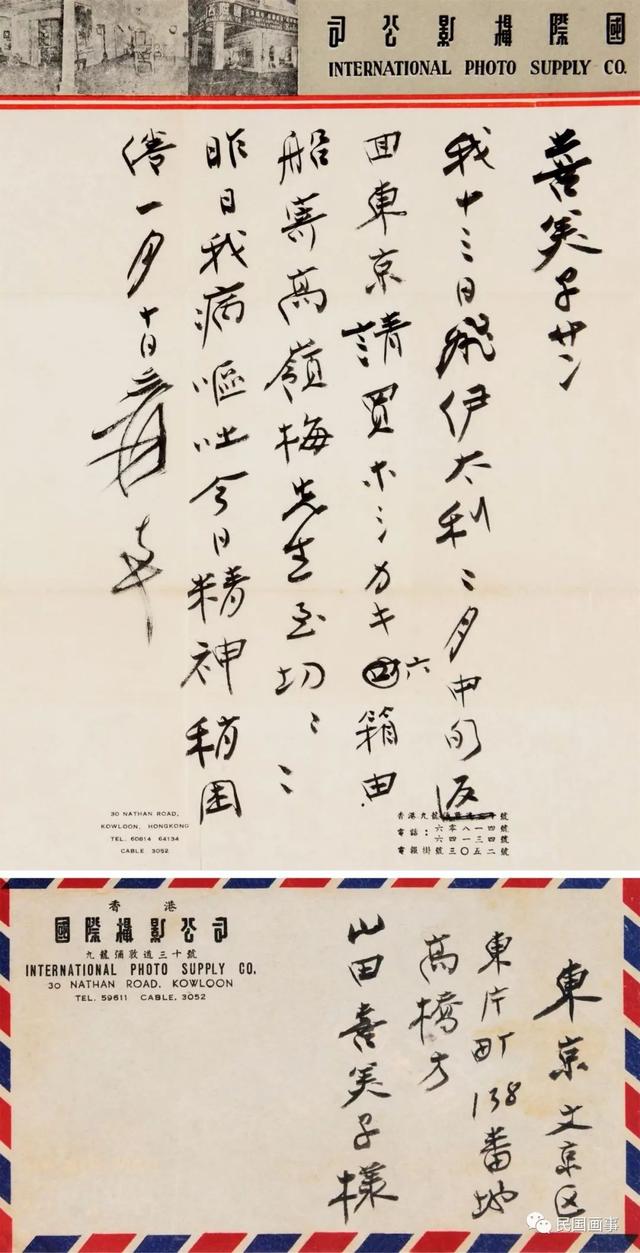 國際攝影公司
INTERNATIONAL PHOTO SUPPLY CO.
喜美子サン
我十三日飛伊太利二月中旬返
回東京請買ホシカキ六箱由
船寄高嶺梅先生至切〻〻
昨日我病嘔吐今日精神稍困
倦一月十日爰
30 NATHAN ROAD,
KOWLOON, HONGKONG
TEL. 60814 64134
CABLE 3052
香港九龍彌敦道三十號
電話：六零八一四號
六四一三四號
電報掛號三〇五二號
香港
國際攝影公司
九龍彌敦道三十號
INTERNATIONAL PHOTO SUPPLY CO.
30 NATHAN ROAD, KOWLOON
TEL. 59611 CABLE. 3052
東京文京区
東片町138番地
高橋方
山田喜美子様
民国画事